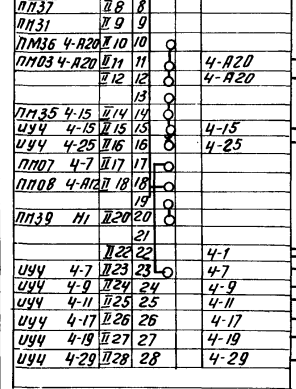 ПМ37 II 8 8
ПМ31 II 9 9
ПМ36 4-А20 II 10 10
ПМ03 4-А20 II 11 11 4-А20
II 12 12 4-А20
13
ПМ35 4-15 II 14 14
ИУЧ 4-15 II 15 15 4-15
ИУЧ 4-25 II 16 16 4-25
ПМ07 4-7 II 17 17
ПМ08 4-А12 II 18 18
19
ПМ39 М1 II 20 20
21
II 22 22 4-1
ИУЧ 4-7 II 23 23 4-7
ИУЧ 4-9 II 24 24 4-9
ИУЧ 4-11 II 25 25 4-11
ИУЧ 4-17 II 26 26 4-17
ИУЧ 4-19 II 27 27 4-19
ИУЧ 4-29 II 28 28 4-29